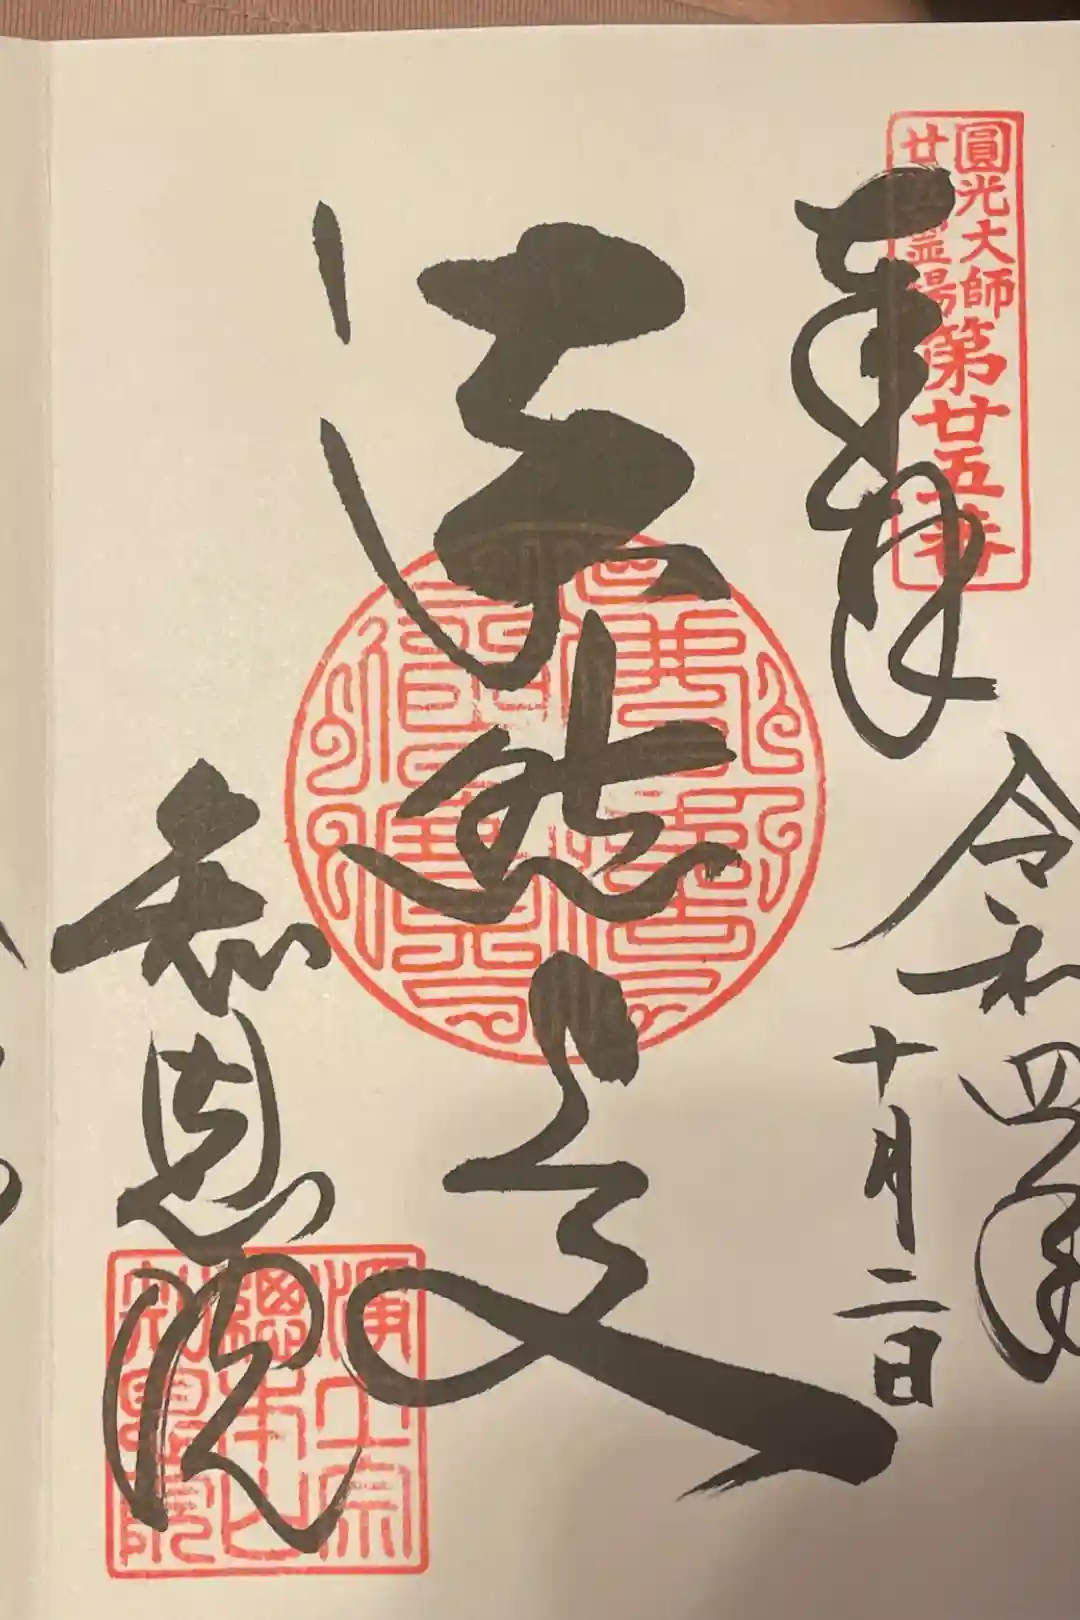 圓光大師
廿五霊場
第廿五番
奉拝
令和四年
十月二日
法然上人
知恩院
浄土宗
總本山
知恩院